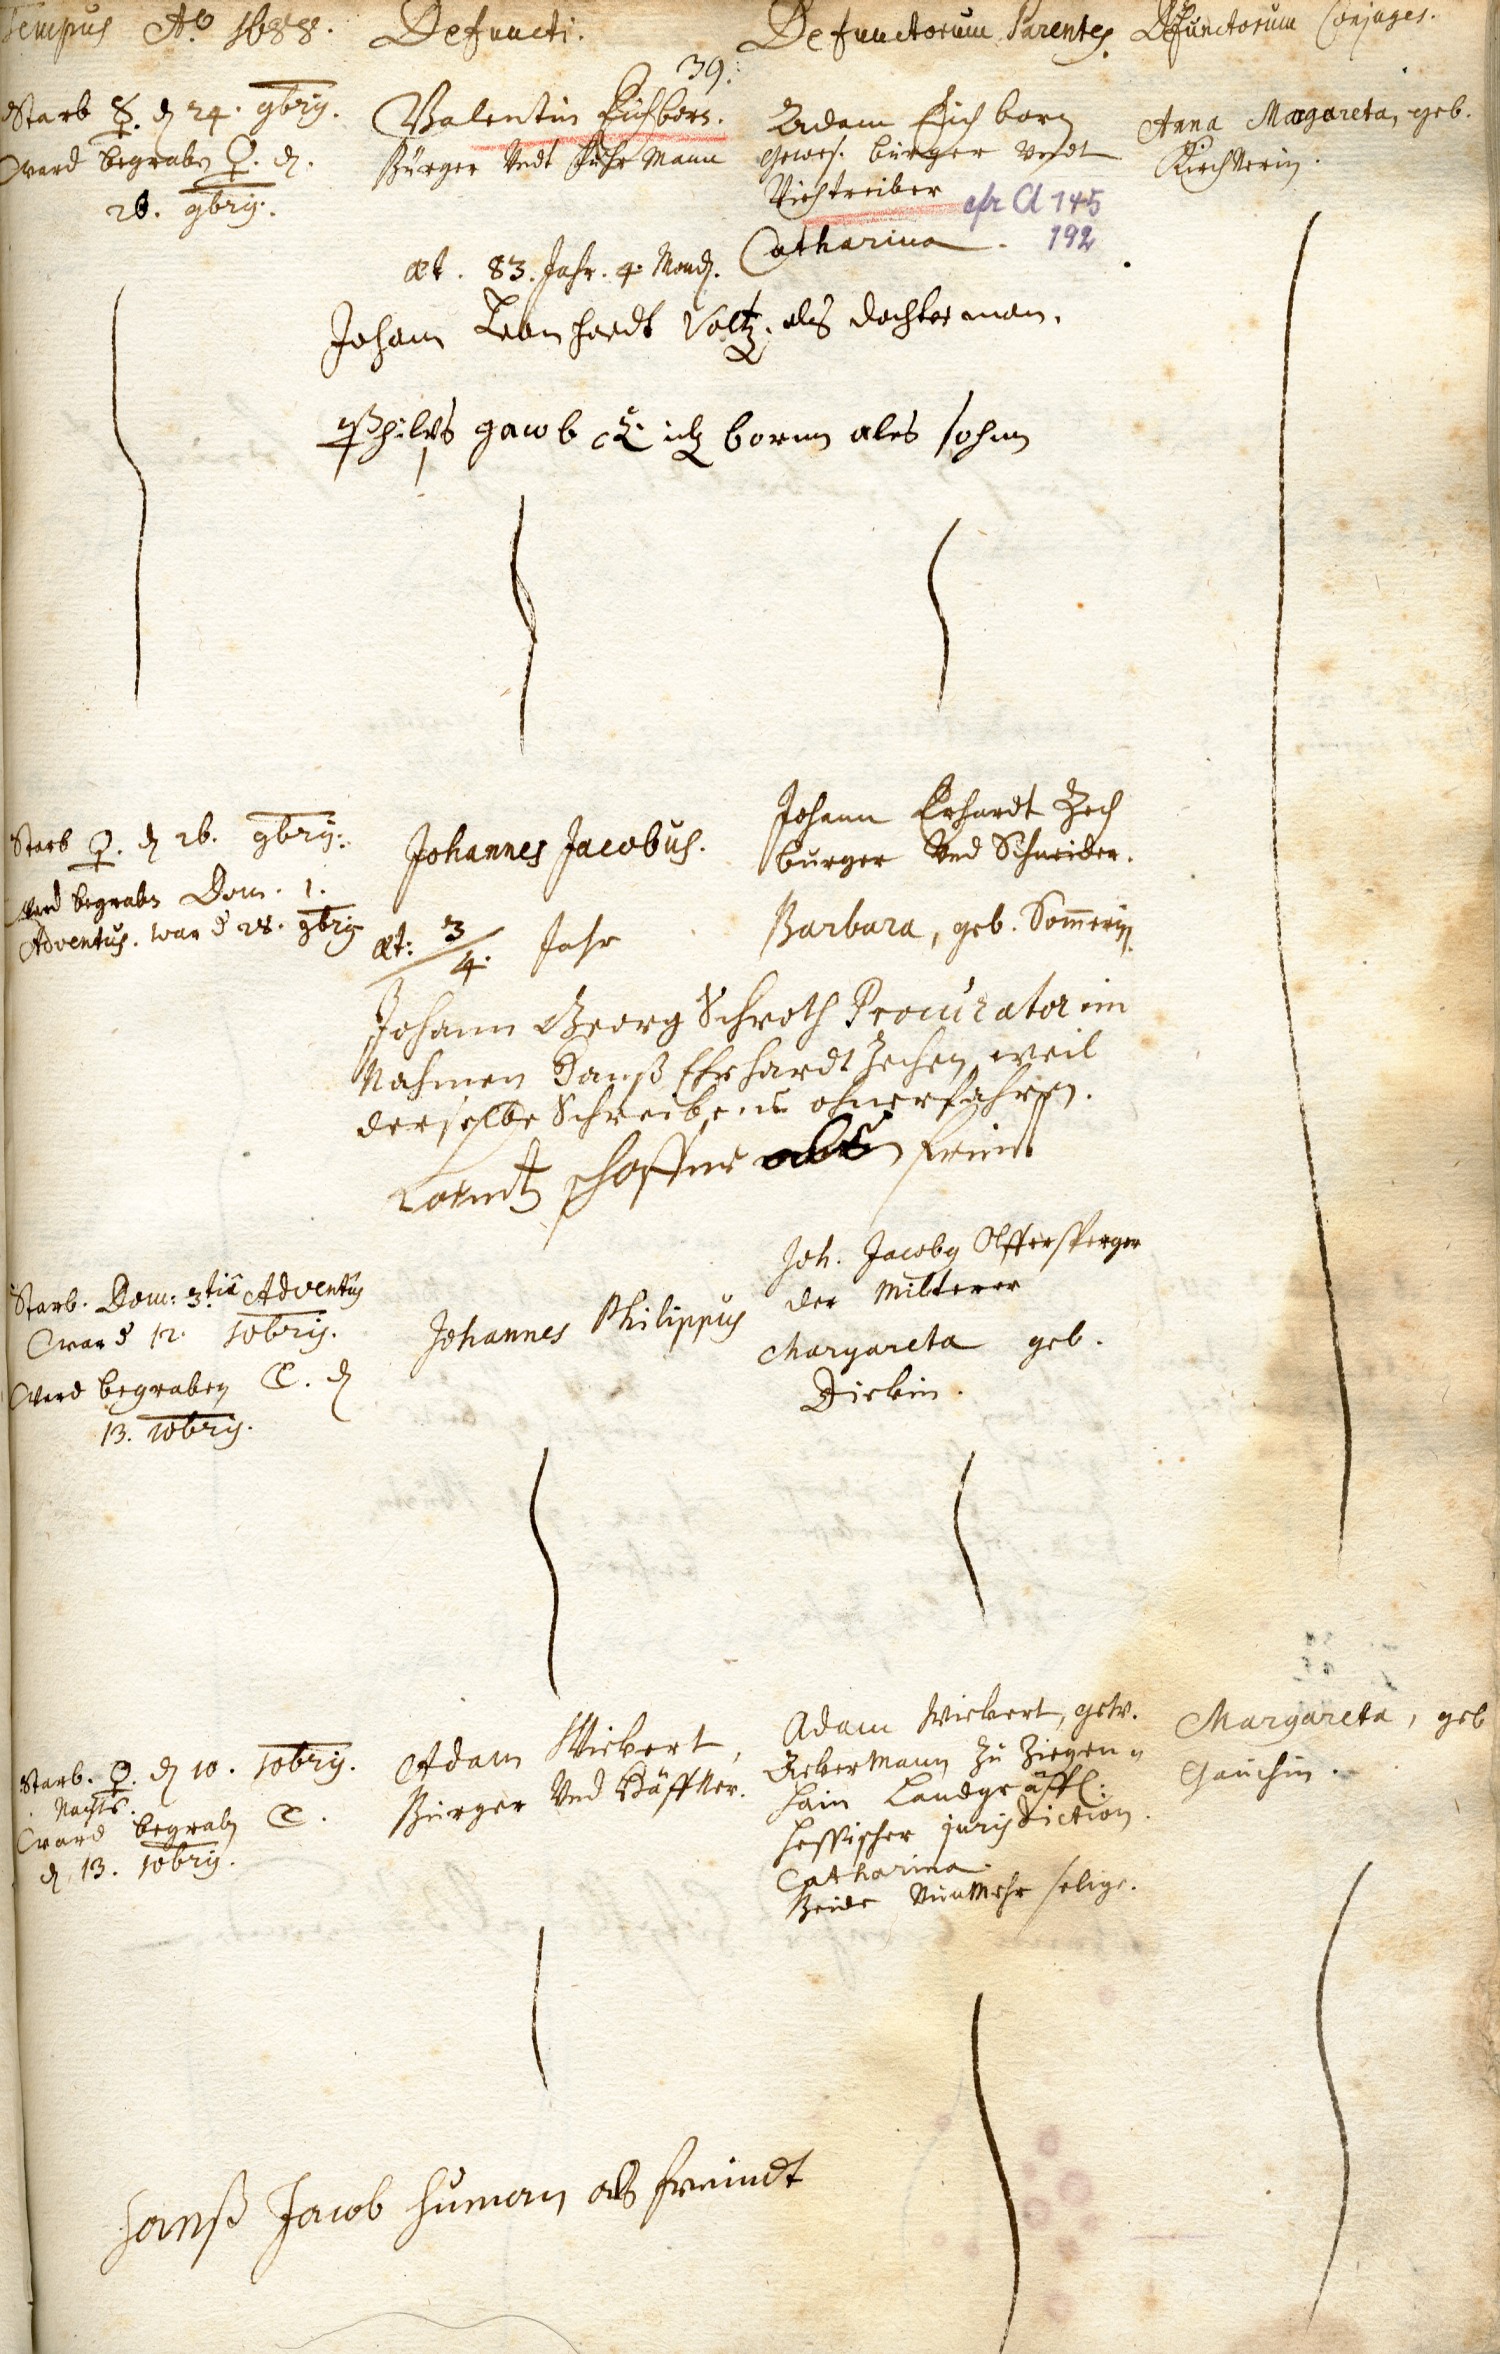 Tempus Ao 1688. Defuncti. Defunctorum Parentes. Defunctorum Conjuges.
39.
Starb ☿. d 24. 9bris.
ward begrabn ♀. d.
26. 9bris.
Valentin Eichborn.
Bürger Undt Fuhr Mann
æt. 83. Jahr. 4. Mond.
Adam Eichborn
gewes. bürger Undt
Viehtreiber
cfr Cl 145
192
Catharina.
Anna Margareta, geb.
Kirchnerin.
Johann Leonhardt Voltz. als dochterman.
Philips gacob Eichbornn ales sohnn
Starb ♀. d 26. 9bris.
ward begrabn Dom. 1.
Adventus. war d 28. 9bris
Johannes Jacobus.
æt: 3/4. Jahr
Johann Erhardt Zech
burger Und Schneider.
Barbara, geb. Sommerin.
Johann Georg Schroth Procurator im
Nahmen Hanß Ehrhardt Zechen, weil
derselbe Schreibens ohnerfahren.
Lorentz schoffner freint
Starb. Dom: 3tiâ Adventus
war d 12. 10bris.
ward begraben ☾. d
13. 10bris.
Johannes Philippus
Joh. Jacob Olffersperger
der
Margareta geb.
Dickin.
Starb. ♀. d 10. 10bris.
Nachts.
ward begrabn ☾.
d 13. 10bris.
Adam Wickert,
Bürger Und
Adam Wickert, gew.
Ackermann Zu Ziegen=
hain Landgräffl:
Hessischer jurisdiction.
Catharina.
Beide Nunmehr selige.
Margareta, geb
Gauchin.
Hanß Jacob Human als freindt